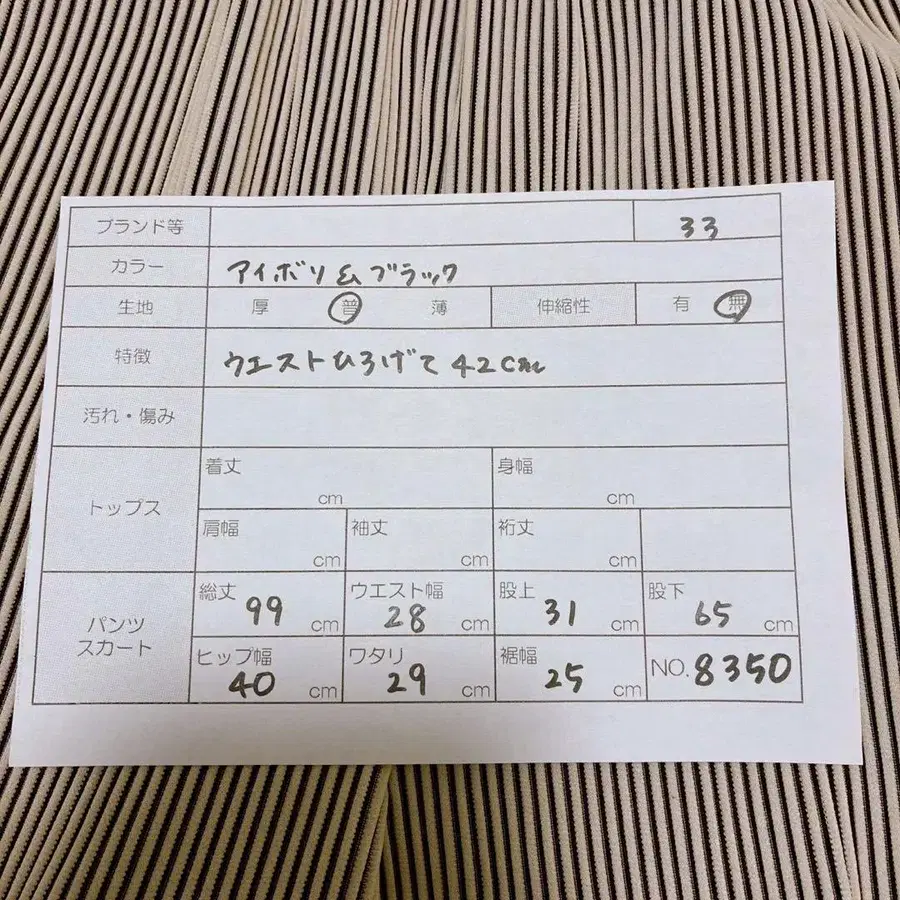 ブランド等 33
カラー アイボリ&ブラック
生地 厚 普 薄 伸縮性 有 無
特徴 ウエストひろげて42cm
汚れ・傷み
トップス
着丈 cm 身幅 cm
肩幅 cm 袖丈 cm 裄丈 cm
パンツ
スカート
総丈 99 cm ウエスト幅 28 cm 股上 31 cm 股下 65 cm
ヒップ幅 40 cm ワタリ 29 cm 裾幅 25 cm NO. 8350